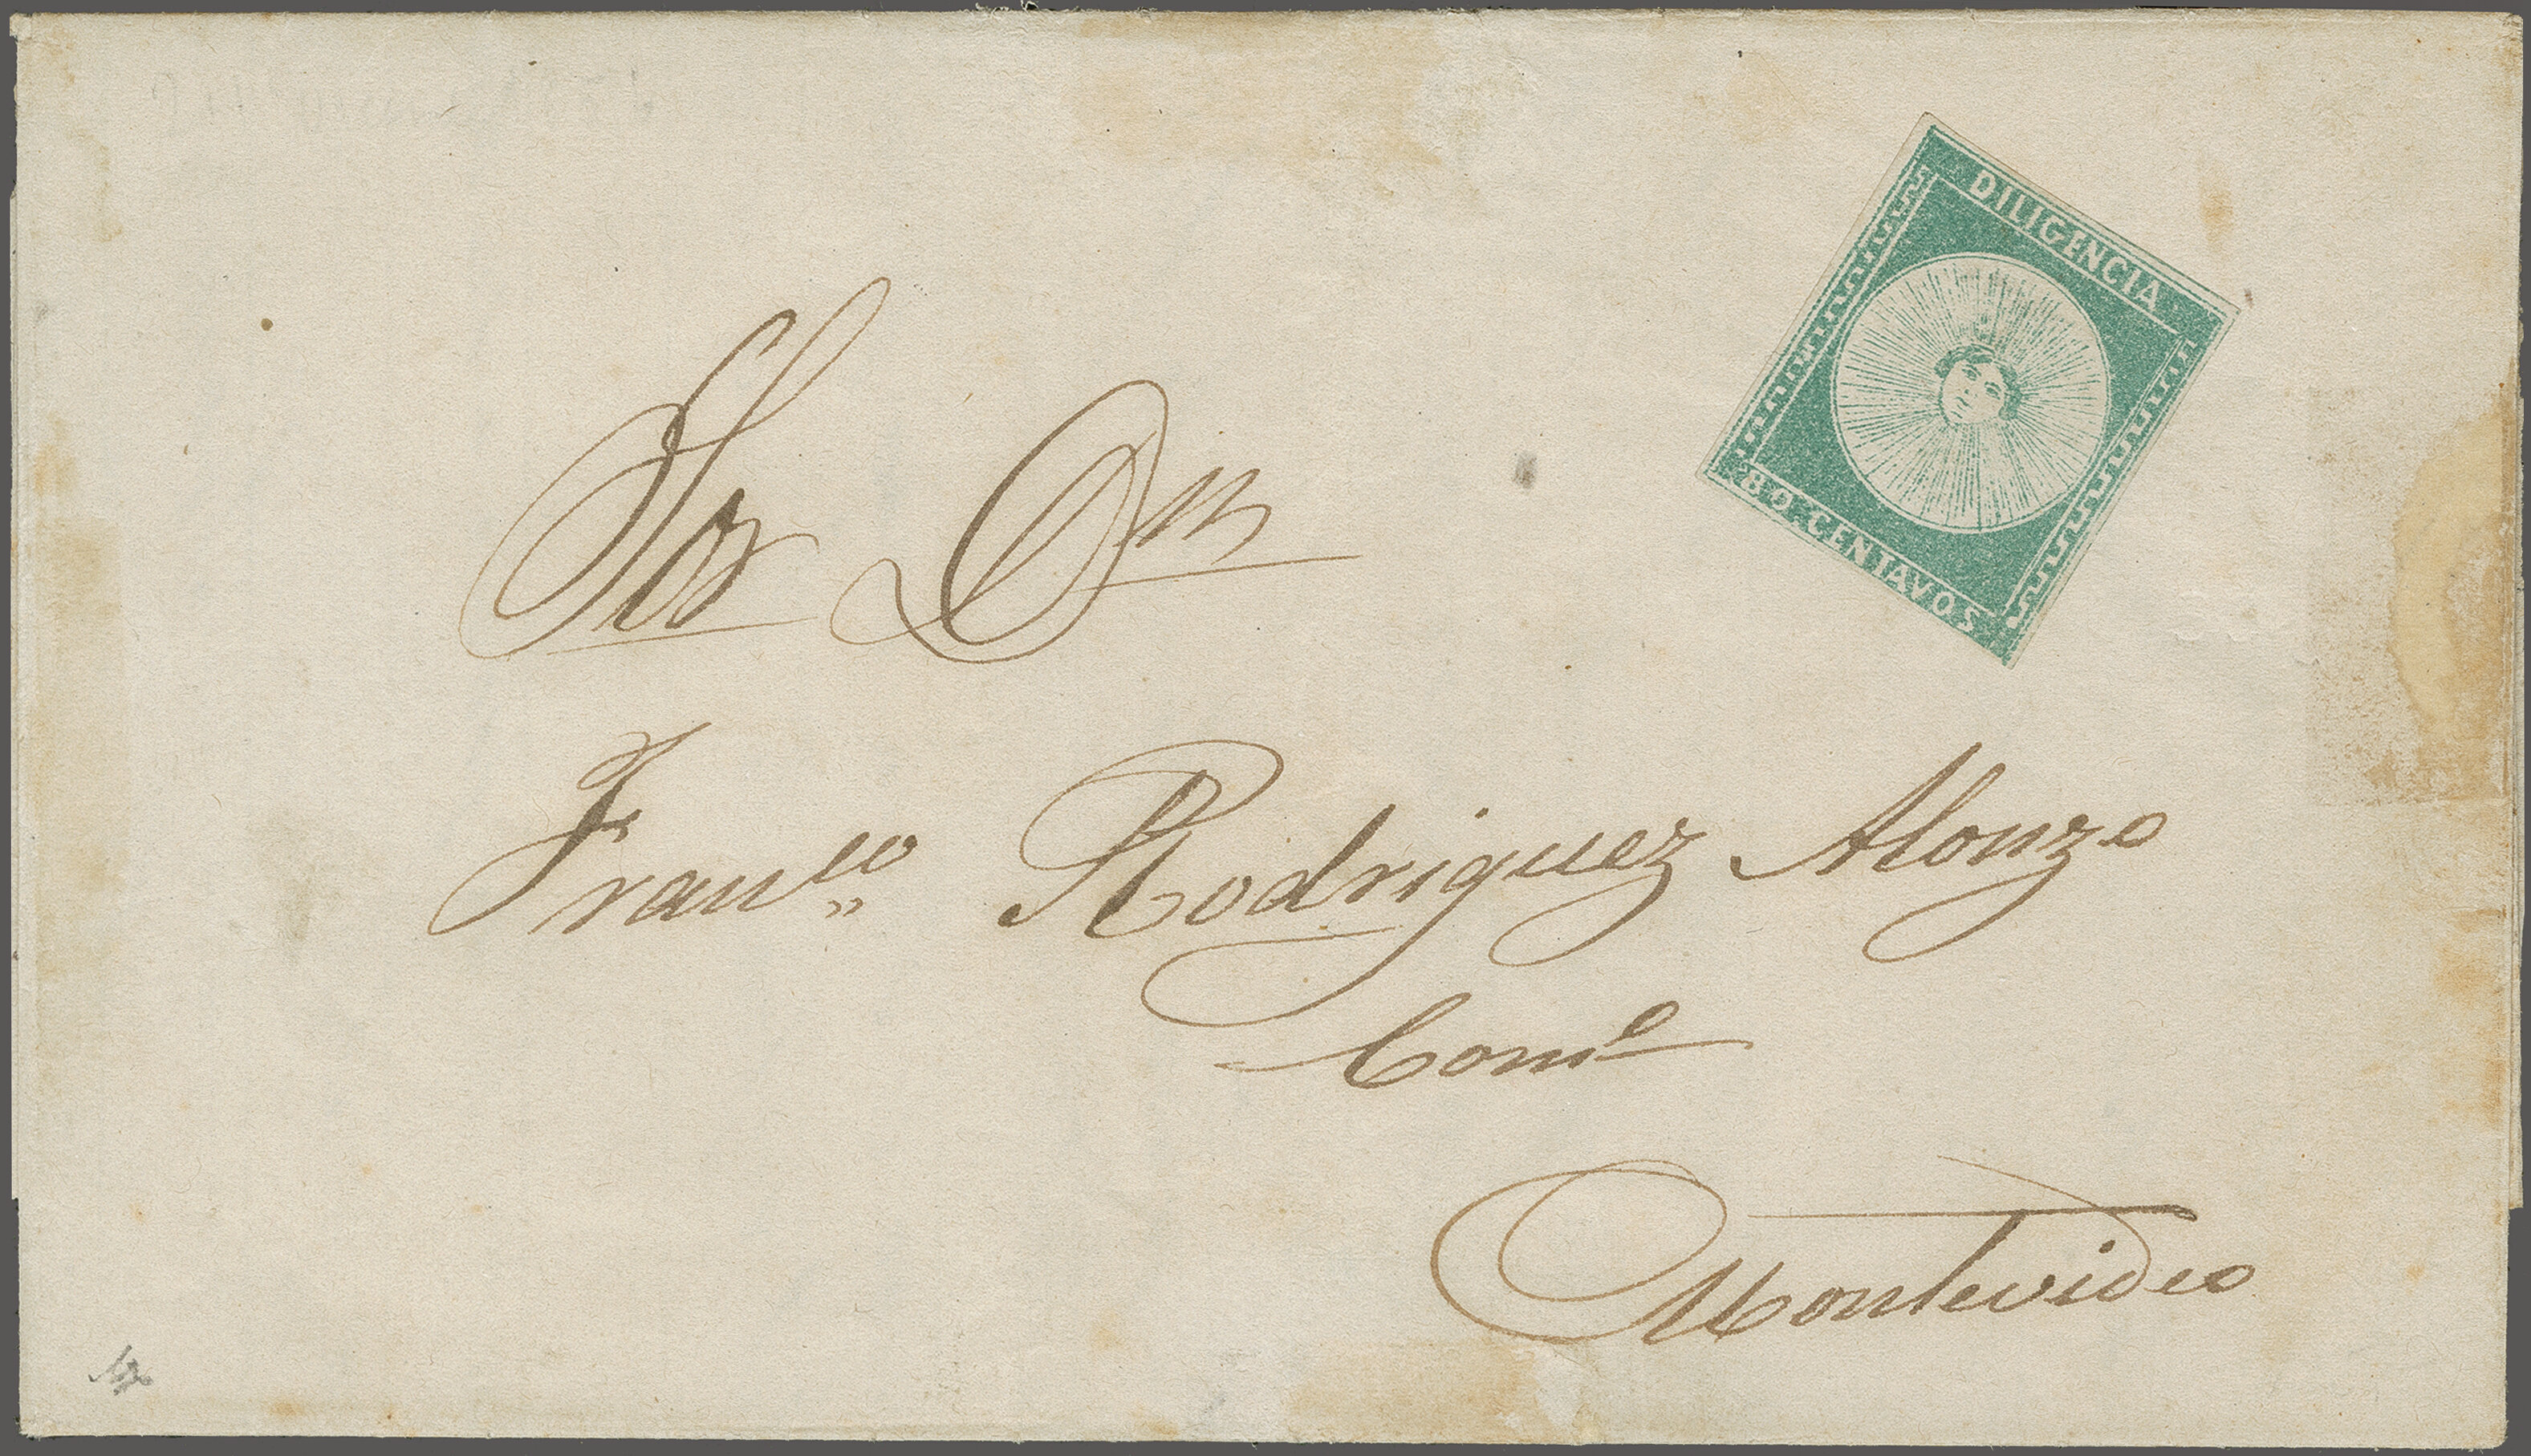 DILIGENCIA
80. CENTAVOS
Sor Dn
Franco Rodriguez Alonzo
Come
Montevideo